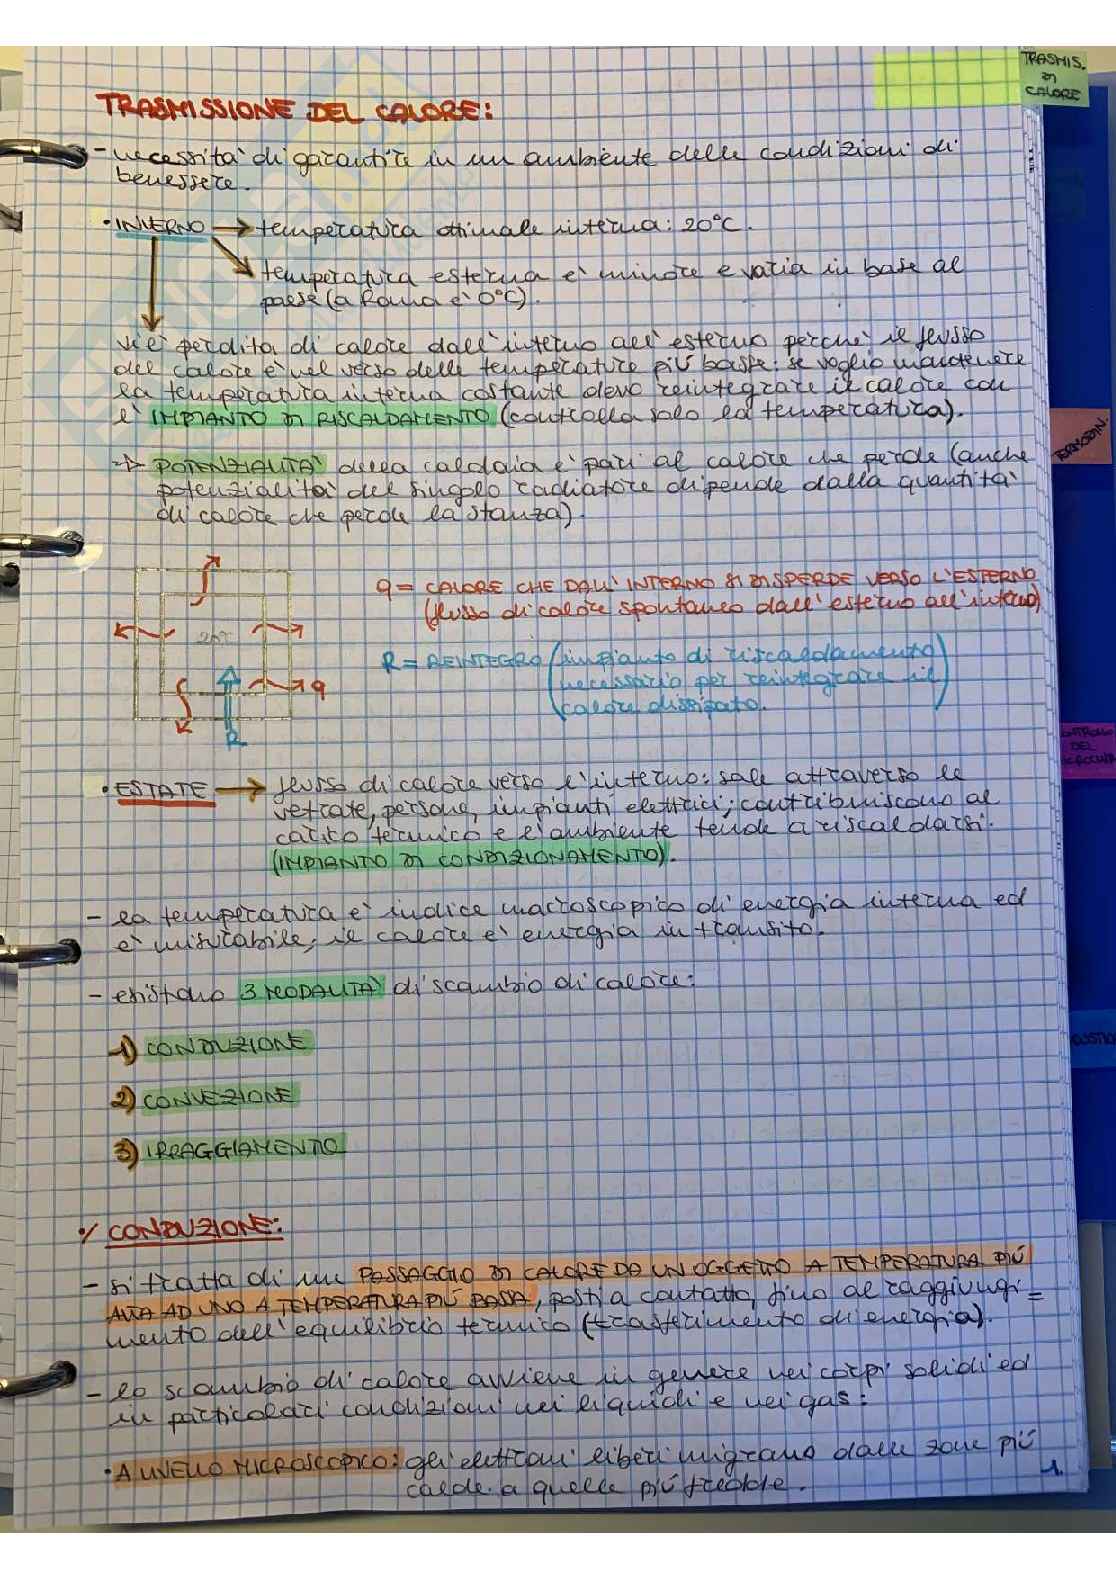 TRASMIS.
DI
CALORE
TRASMISSIONE DEL CALORE:
- necessità di garantire in un ambiente delle condizioni di
benessere.
• INVERNO → temperatura ottimale interna: 20°C.
temperatura esterna è minore e varia in base al
paese (a Roma è 0°C).
vi è perdita di calore dall'interno all'esterno perché il flusso
del calore è nel verso delle temperature più basse: se voglio mantenere
la temperatura interna costante devo reintegrare il calore con
l'IMPIANTO DI RISCALDAMENTO (controlla solo la temperatura).
POTENZIALITÀ della caldaia è pari al calore che perde (anche
potenzialità del singolo radiatore dipende dalla quantità
di calore che perde la stanza).
q = CALORE CHE DALL'INTERNO SI DISPERDE VERSO L'ESTERNO
(flusso di calore spontaneo dall'esterno all'interno)
q
R = REINTEGRO (impianto di riscaldamento
necessario per reintegrare il
calore dissipato.)
R
• ESTATE → flusso di calore verso l'interno: sale attraverso le
vetrate, persone, impianti elettrici; contribuiscono al
carico termico e l'ambiente tende a riscaldarsi.
(IMPIANTO DI CONDIZIONAMENTO).
- la temperatura è indice macroscopico di energia interna ed
è misurabile; il calore è energia in transito.
- esistono 3 MODALITÀ di scambio di calore:
1) CONDUZIONE
2) CONVEZIONE
3) IRRAGGIAMENTO
CONDUZIONE:
- si tratta di un PASSAGGIO DI CALORE DA UN OGGETTO A TEMPERATURA PIÚ
ALTA AD UNO A TEMPERATURA PIÚ BASSA, posti a contatto, fino al raggiungi=
mento dell'equilibrio termico (trasferimento di energia).
- lo scambio di calore avviene in genere nei corpi solidi ed
in particolari condizioni nei liquidi e nei gas:
• A LIVELLO MICROSCOPICO: gli elettroni liberi migrano dalle zone più
calde a quelle più fredde.
1.